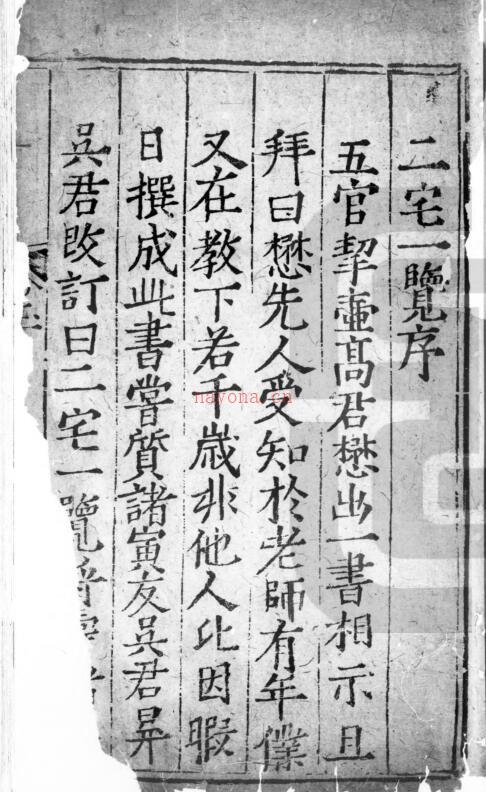 二宅一覽序
五官挈壷髙君懋出一書相示且
拜曰懋先人受知於老師有年僕
又在教下若干歲非他人比因暇
日撰成此書嘗質諸寅友吳君昇
吳君改訂曰二宅一覽
nayona.cn